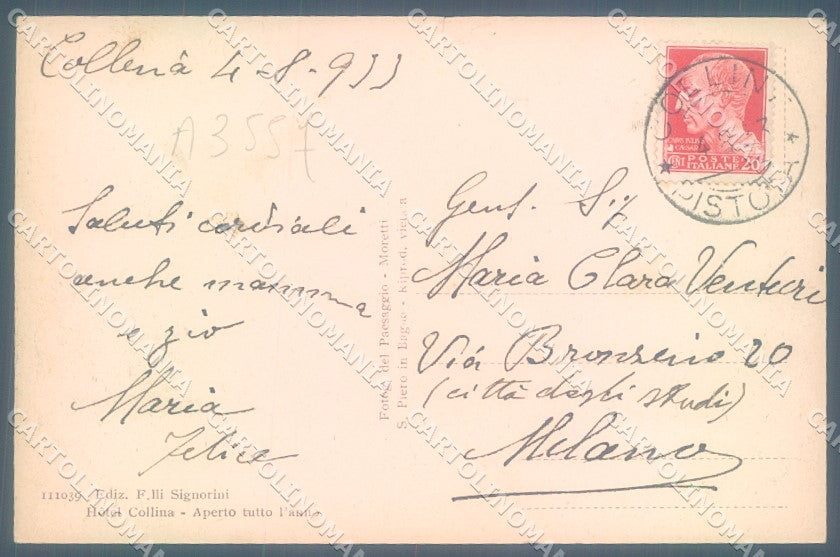 Collina 4-8-933
A3557
Saluti cordiali
anche mamma
e zio
Maria
Felice
111039 Ediz. F.lli Signorini
Hotel Collina - Aperto tutto l'anno
Fotog. del Paesaggio - Moretti
S. Piero in Bagno - Riprod. vietata
POSTE
ITALIANE
CENT 20
COLLINA
PISTOIA
Gent. Sig
Maria Clara Venturi
Via Bronzino 20
(città degli studi)
Milano
CARTOLINOMANIA